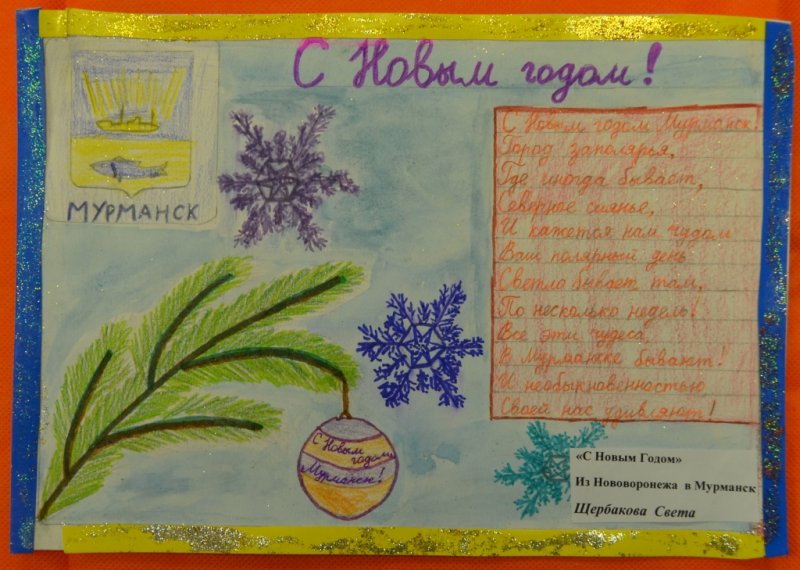 С Новым годом!
МУРМАНСК
С Новым годом Мурманск!
Город заполярья,
Где иногда бывает,
Северное сиянье,
И кажется нам чудом
Ваш полярный день
Светло бывает там,
По несколько недель!
Все эти чудеса,
В Мурманске бывают!
И необыкновенностью
Своей нас удивляют!
С Новым
годом
Мурманск!
«С Новым Годом»
Из Нововоронежа в Мурманск
Щербакова Света